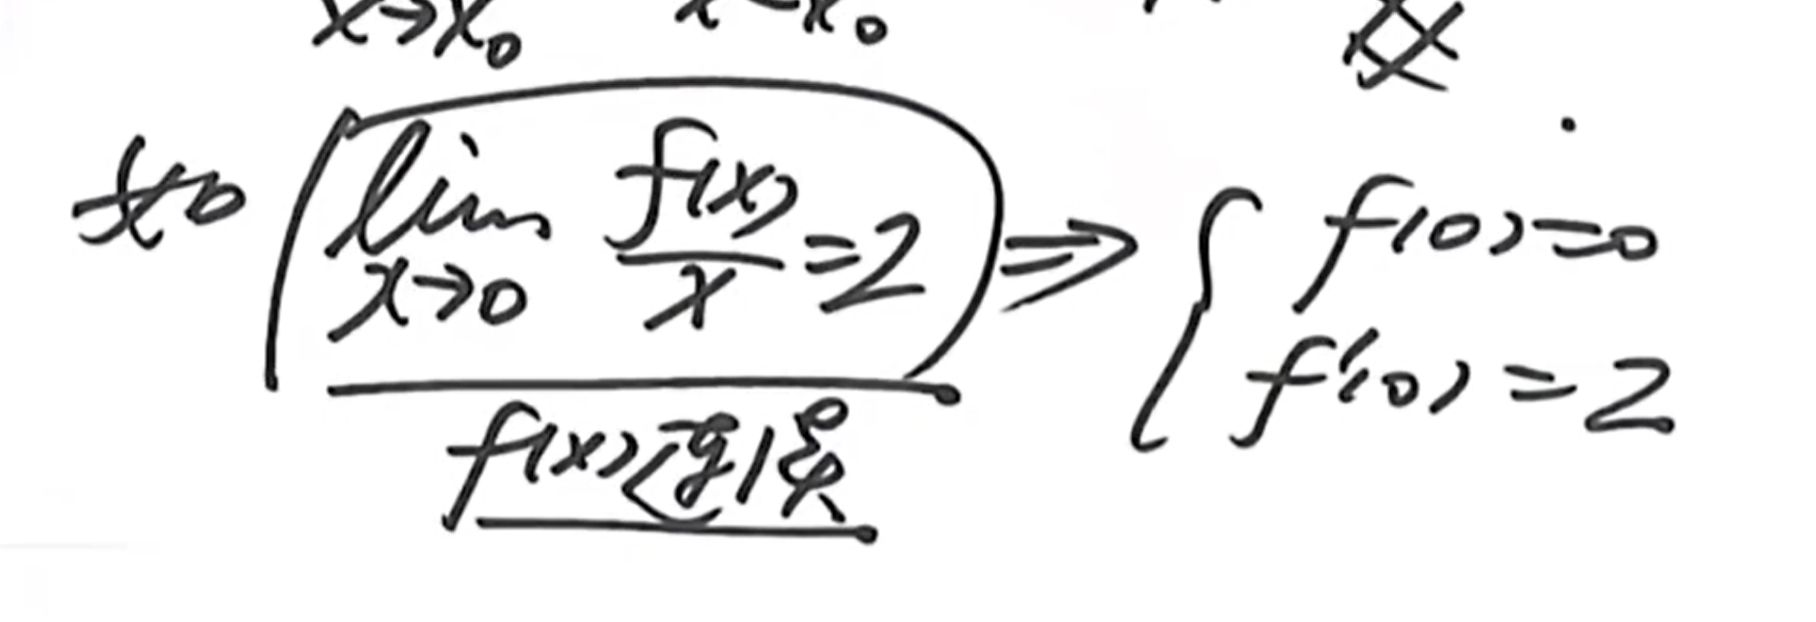 x→x₀ x-x₀
如 lim x→0 f(x)/x = 2 ⇒ { f(0)=0
f'(0)=2
f(x)连续